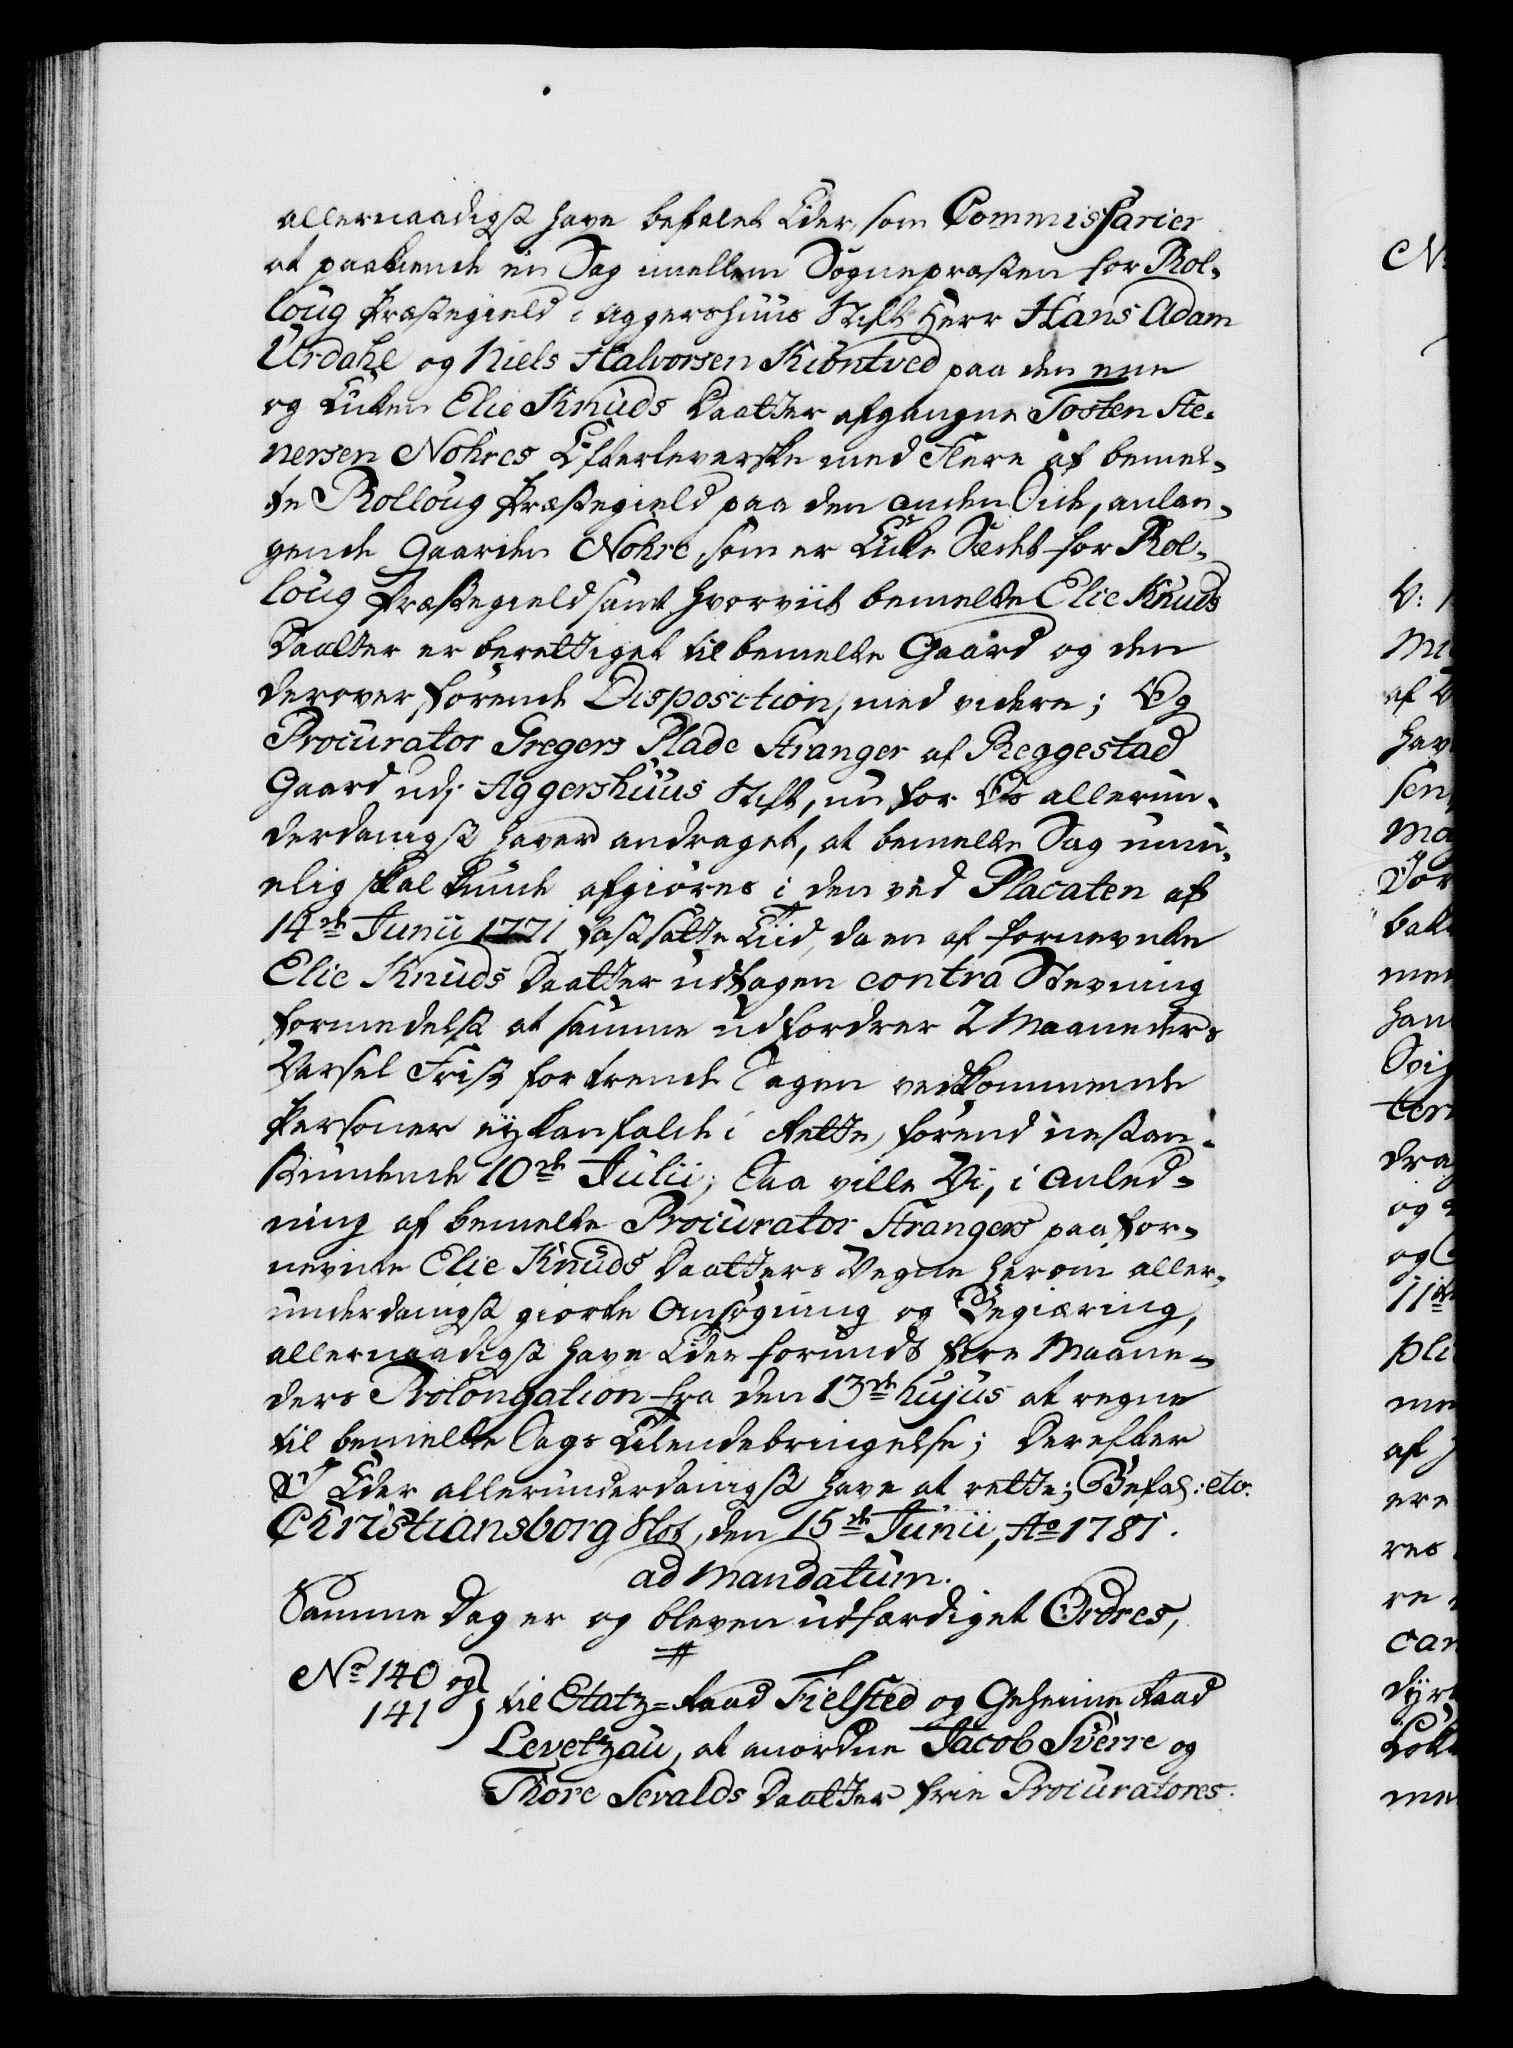 allernaadigst have befalet Eder, som Commissarier
at paakiende en Sag imellem Sognepræsten for Rol-
loug Præstegield i Aggershuus Stift Herr Hans Adam
Urdahl og Niels Halvorsen Kiöntved paa den ene
og Enken Elie Knuds Daatter afgangne Tosten Ste-
nersen Nohres Efterleverske med Flere af bemel-
te Rolloug Præstegield paa den anden Side, anlan-
gende Gaarden Nohre, som er Enke Sædet for Rol-
loug Præstegield samt hvorviit bemelte Elie Knuds
Daatter er berettiget til bemelte Gaard og den
derover förende Disposition, med videre; Og
Procurator Gregers Plade Stranger af Reggestad
Gaard udj Aggershuus Stift, nu for Os allerun-
derdanigst haver andraget, at bemelte Sag umu-
elig skal kunde afgiöres i den ved Placaten af
14de Junii 1771 fastsatte Tiid, da en af fornevnte
Elie Knuds Daatter udtagen contra Stevning
formedelst at samme udfordrer 2 Maaneders
Varsel Frist for trende Sagen vedkommende
Personer ey kan falde i Rette, förend nestan-
stundende 10de Julii; Saa ville Vi, i Anled-
ning af bemelte Procurator Strangers paa for-
nevnte Elie Knuds Daatters Vegne herom aller-
underdanigst giorte Ansögning og Begiæring,
allernaadigst have Eder forundt fire Maane-
ders Prolongation fra den 13de hujus at regne
til bemelte Sags Tilendebringelse; Derefter
I Eder allerunderdanigst have at rette; Befal: etc.
Christiansborg Slot, den 15de Junii, Ao 1781.
ad Mandatum.
Samme Dag er og bleven udfærdiget Ordres,
No 140 og
141) til Etatz-Raad Fielsted og Geheime Raad
Levetzau, at anordne Jacob Sverre og
Thore Sevalds Daatter frie Procuratores.